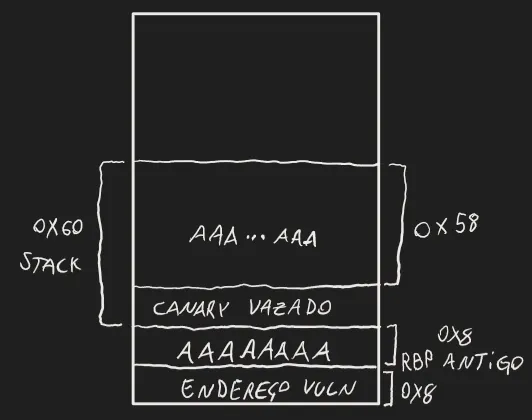 0X60
STACK
AAA...AAA
0X58
CANARY VAZADO
AAAAAAAA
0X8
RBP ANTiGO
ENDEREÇO VULN
0X8